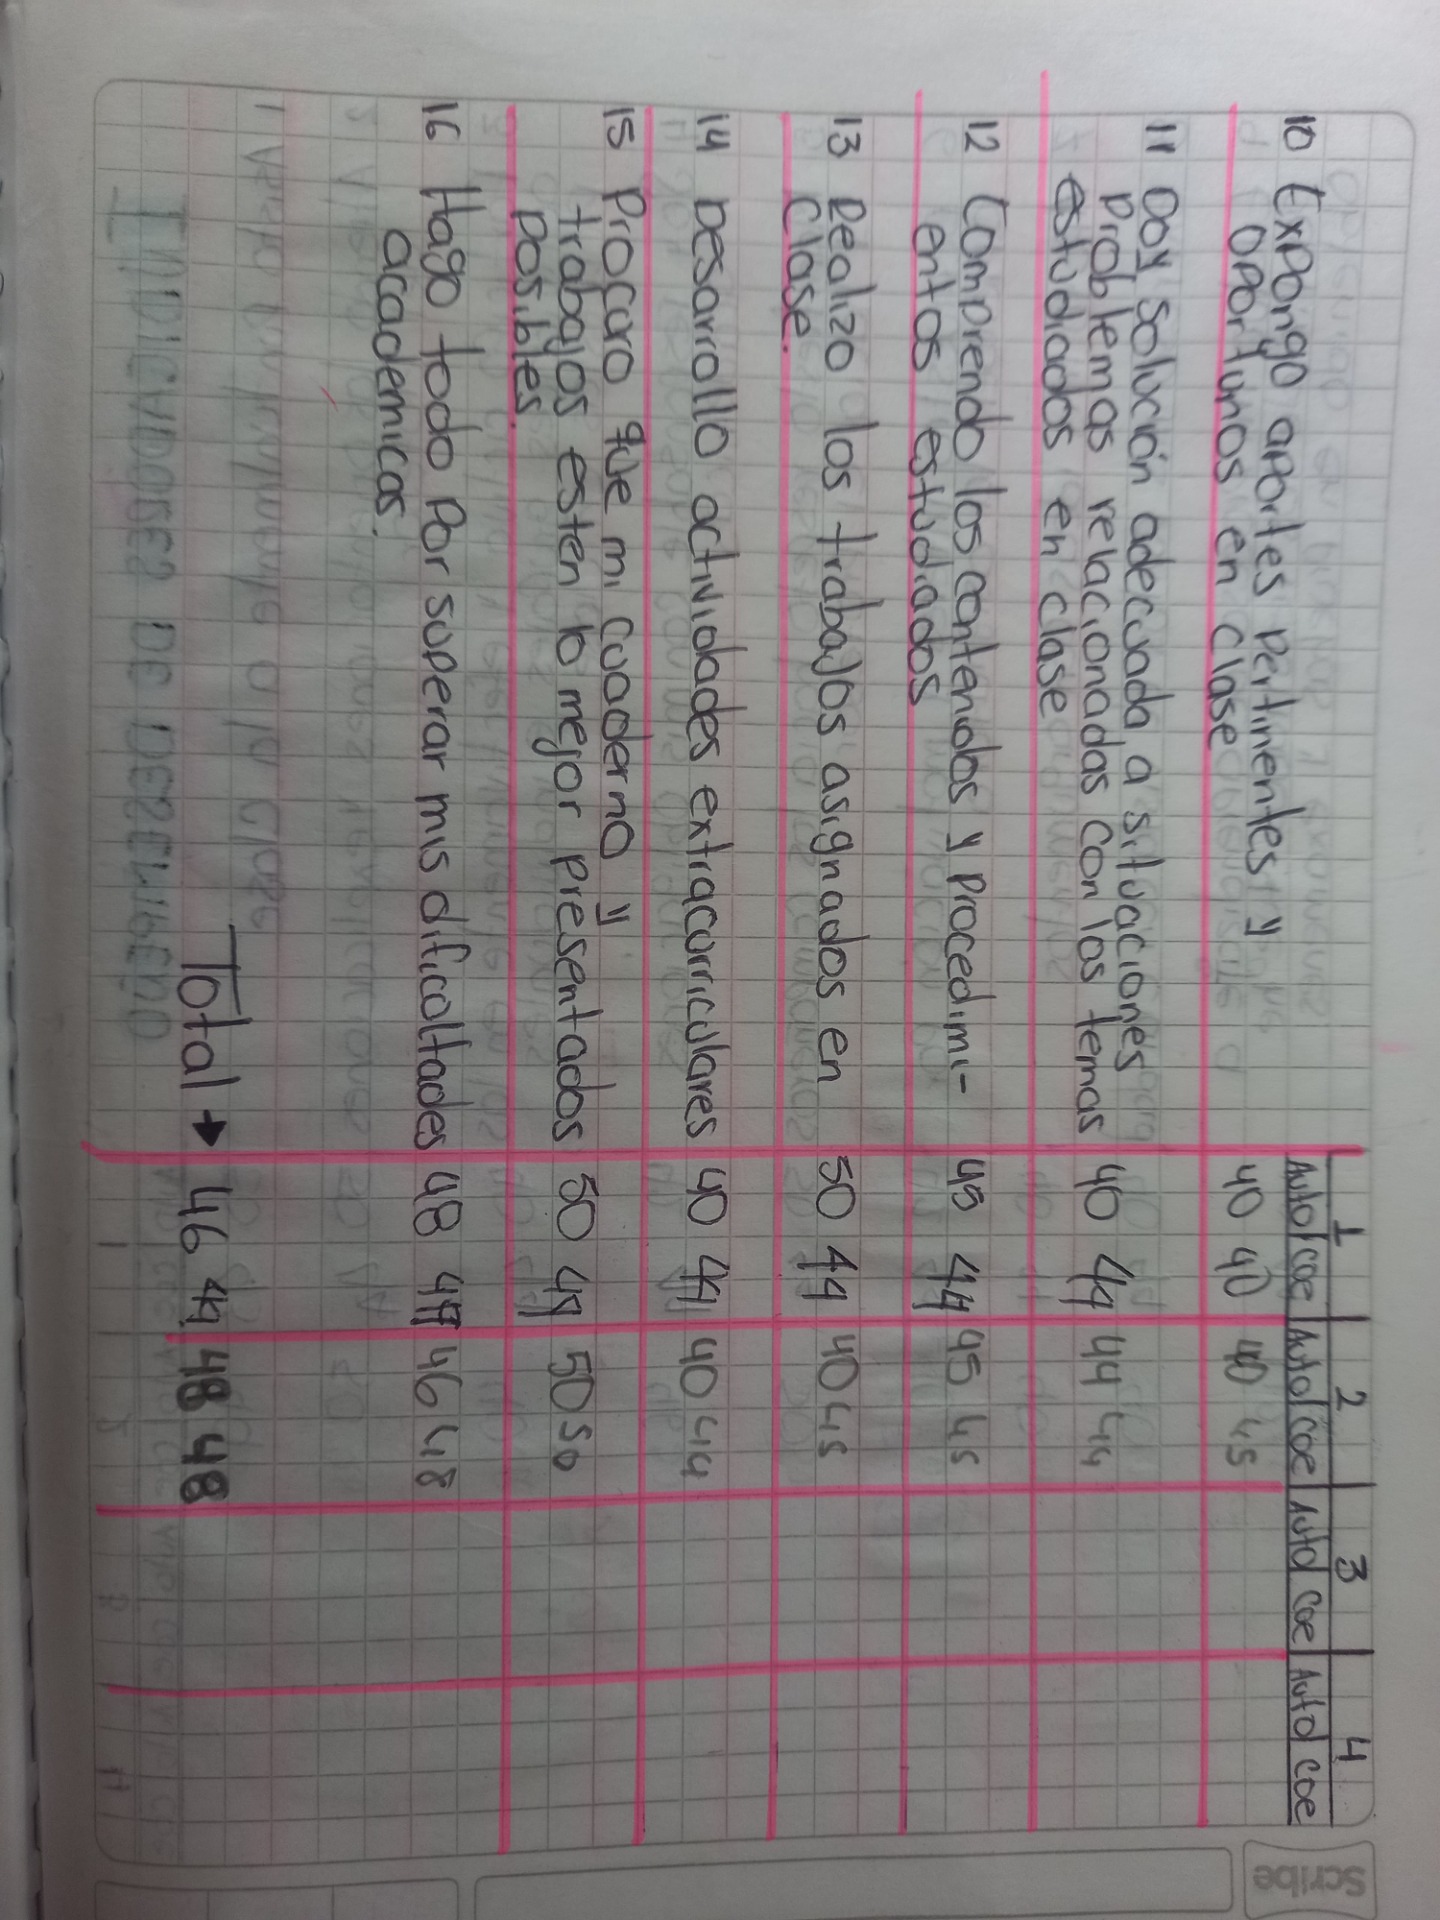 1 2 3 4
Auto coe Auto coe Auto coe Auto coe
10 Expongo aportes pertinentes y
oportunos en clase 40 40 40 45
11 Doy solución adecuada a situaciones
problemas relacionadas con los temas 40 44 44 44
estudiados en clase
12 Comprendo los contenidos y procedimi- 45 44 45 45
entos estudiados
13 Realizo los trabajos asignados en 50 44 40 45
clase.
14 Desarrollo actividades extracurriculares 40 44 40 44
15 Procuro que mi cuaderno y
trabajos esten lo mejor presentados 50 49 50 50
posibles.
16 Hago todo por superar mis dificultades 48 47 46 48
academicas.
Total → 46 44 48 48
Scribe